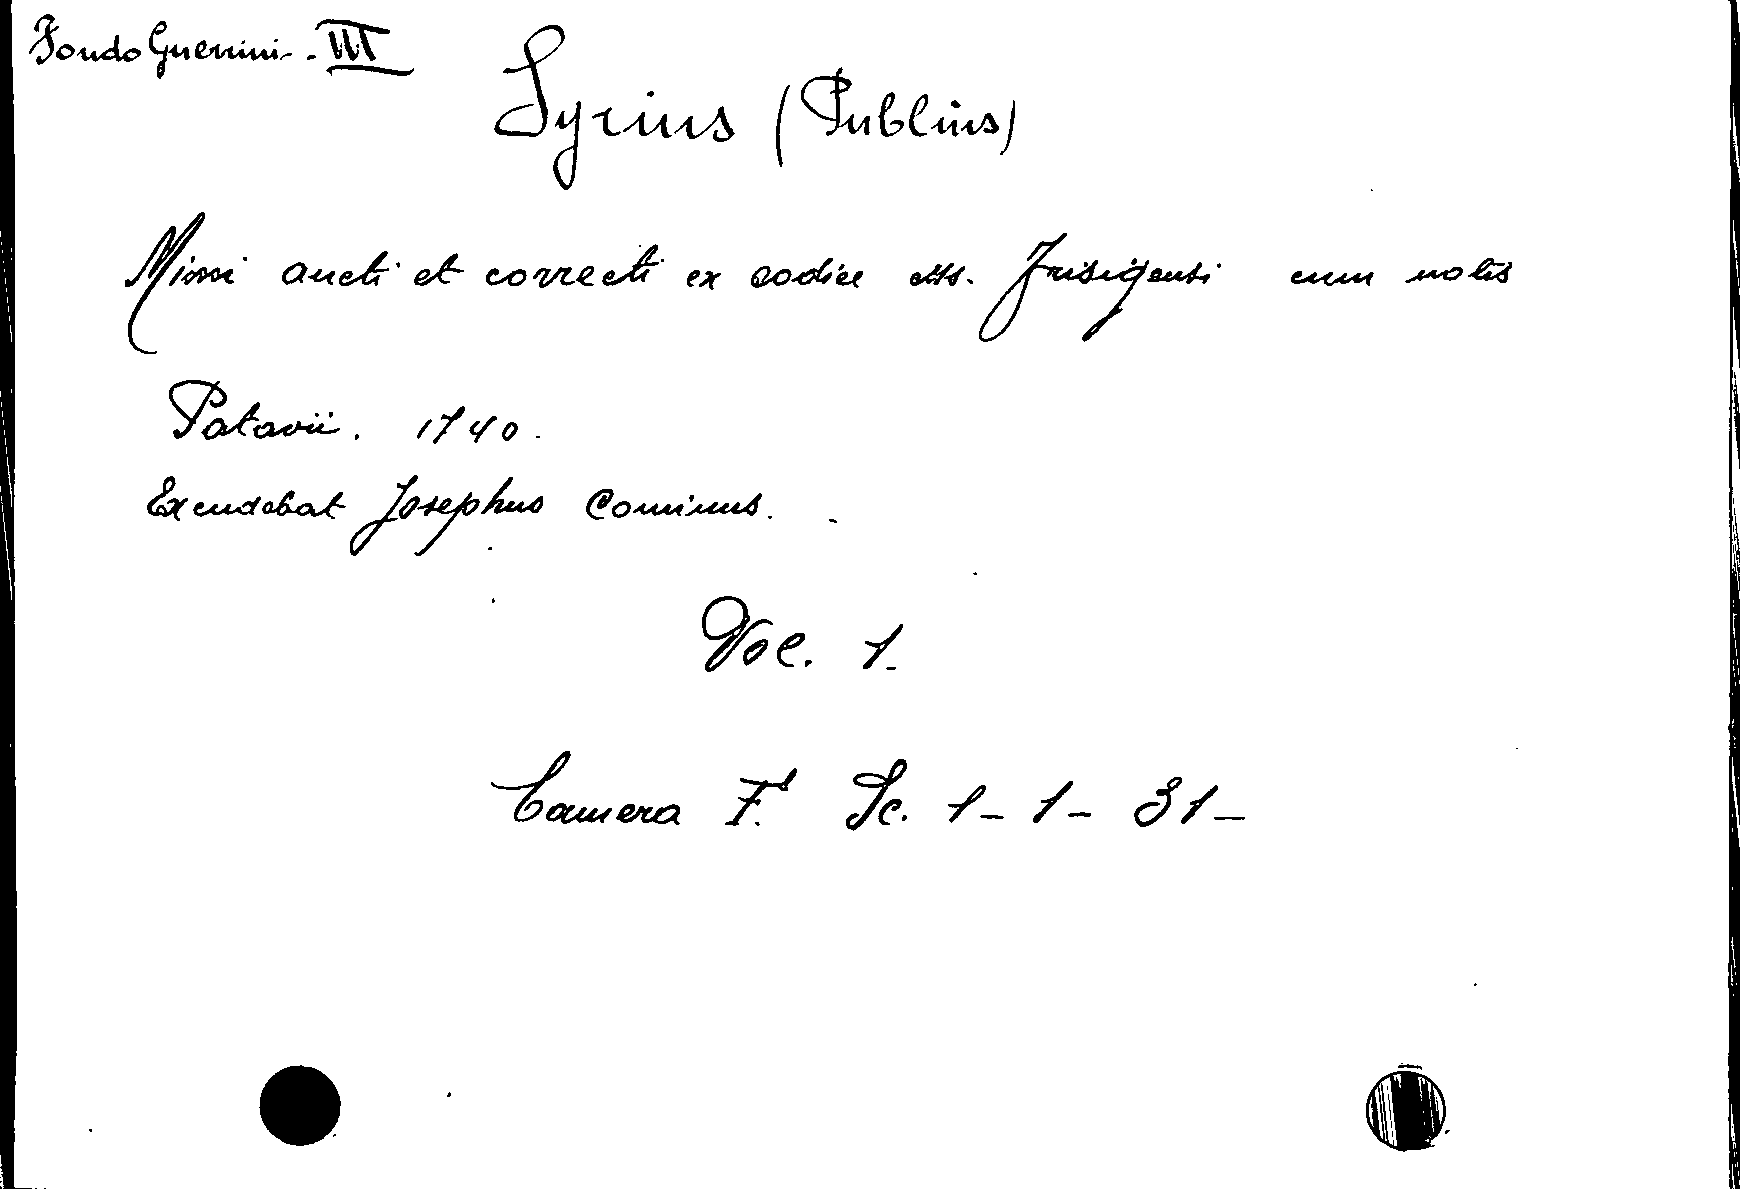 Fondo Guerrini - III
Syrius (Publius)
Mimi aucti et correcti ex codice ms. Frisigensi cum notis
Patavii. 1740.
Excudebat Josephus Cominus.
Vol. 1.
Camera F. Sc. 1 - 1 - 31 -